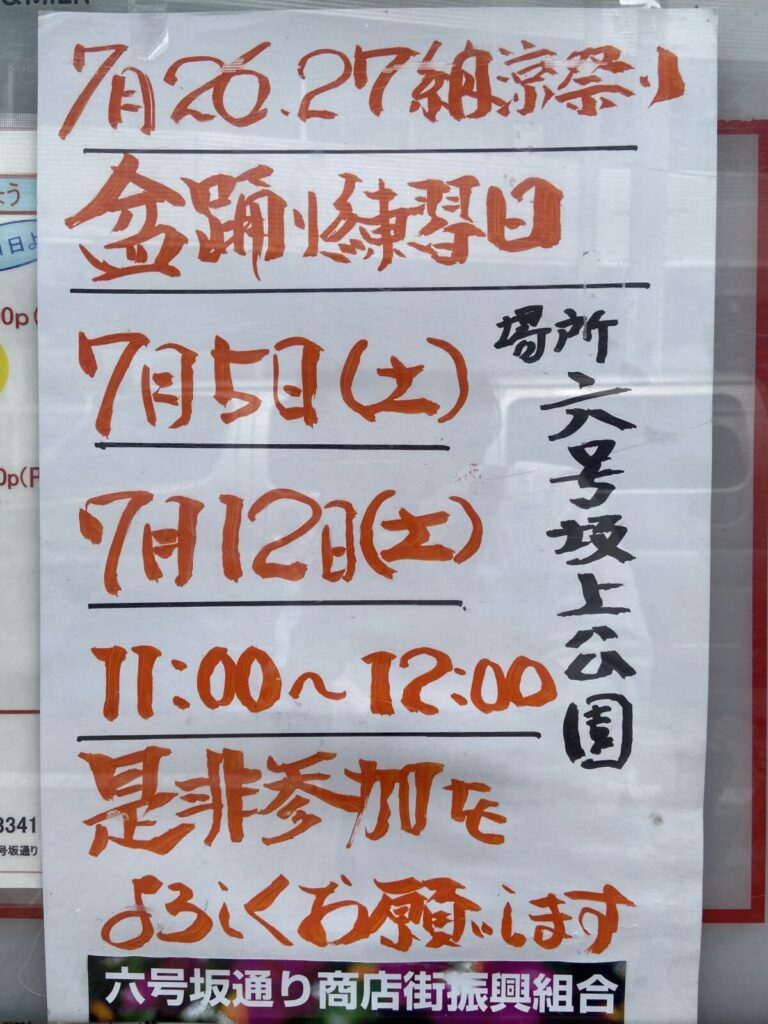 7月26.27納涼祭り
盆踊り練習日
7月5日(土)
7月12日(土)
11:00～12:00
場所
六号坂上公園
是非参加を
よろしくお願いします
六号坂通り商店街振興組合
よう
日よ
0p(
0p(F
3341
号坂通り